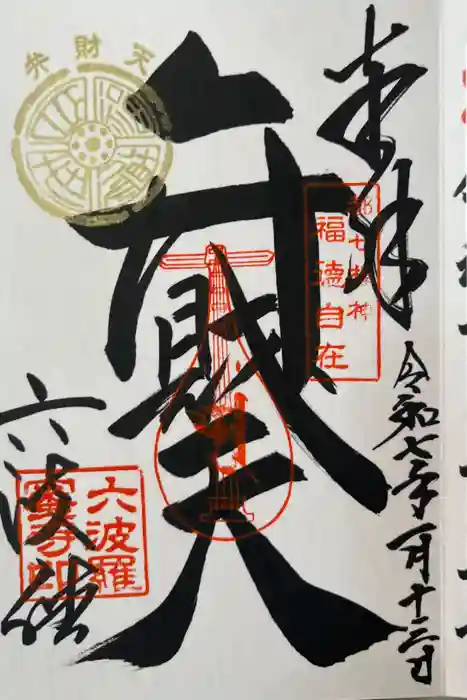 奉拝
都七福神
福徳自在
令和七年一月十三日
弁財天
弁財天
六波羅
六波羅
密寺印